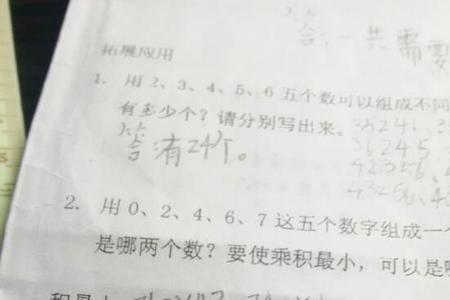 答：一共需要
拓展应用
1. 用2、3、4、5、6五个数可以组成不同
有多少个？请分别写出来。35246、3
36245
答 有24个。
42356、
43256、4
2. 用0、2、4、6、7这五个数字组成一个
是哪两个数？要使乘积最小，可以是哪
积最